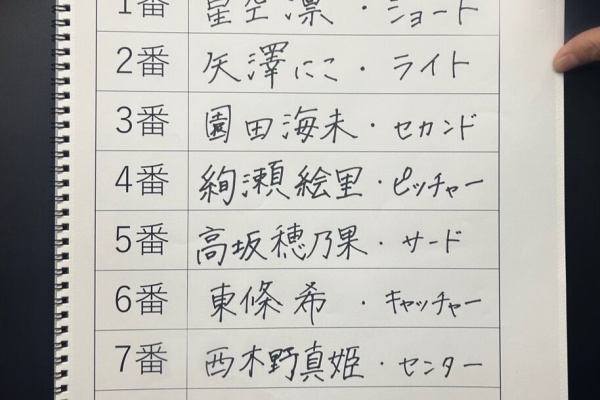 1番 星空凛・ショート
2番 矢澤にこ・ライト
3番 園田海未・セカンド
4番 絢瀬絵里・ピッチャー
5番 高坂穂乃果・サード
6番 東條希・キャッチャー
7番 西木野真姫・センター